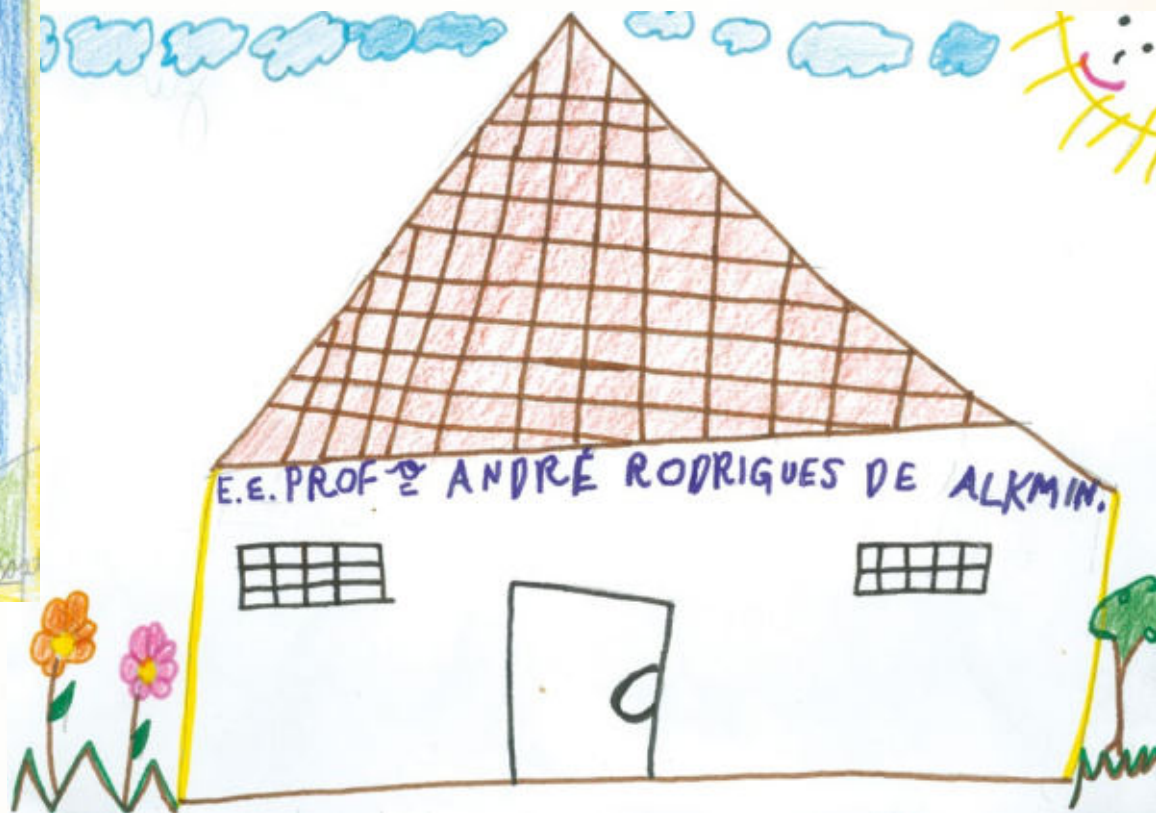 E.E. PROFº ANDRÉ RODRIGUES DE ALKMIN.